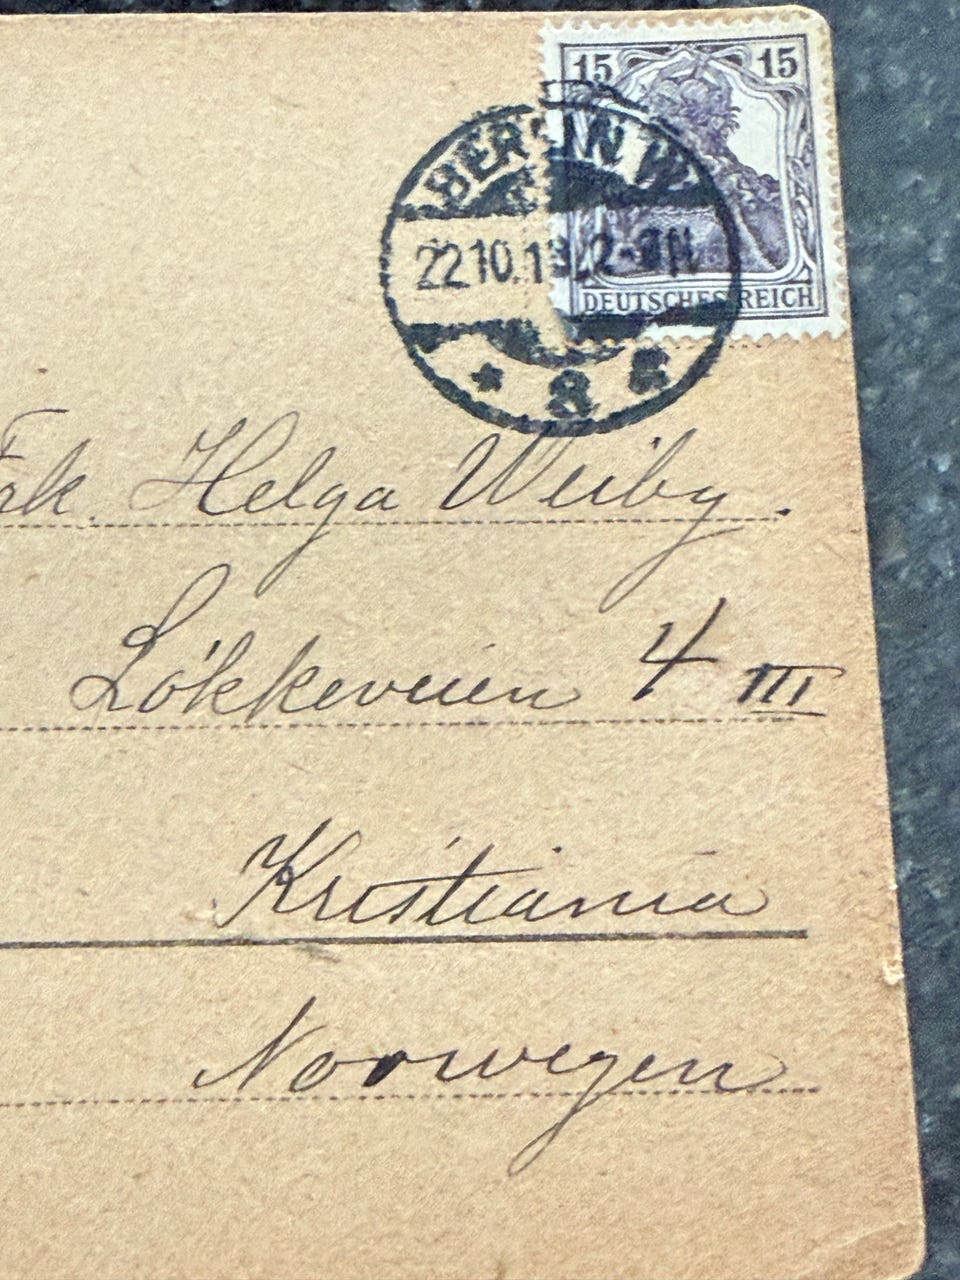 15 15
BERLIN W.
22.10.18. 2-3N
DEUTSCHES REICH
* 8 k
Frk. Helga Weiby.
Lökkeveien 4 III
Kristiania
Norwegen